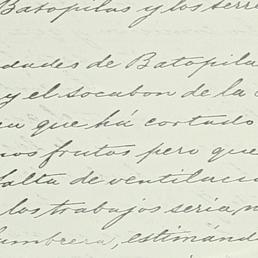 Batopilas y los terre
dades de Batopila
y el socabon de la
que há cortado
nos frutos pero que
falta de ventilacio
los trabajos seria, m
lumbrera, estimánd